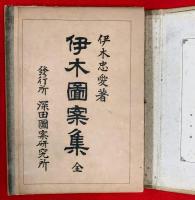 伊木忠愛著
伊木圖案集 全
發行所 深田圖案研究所